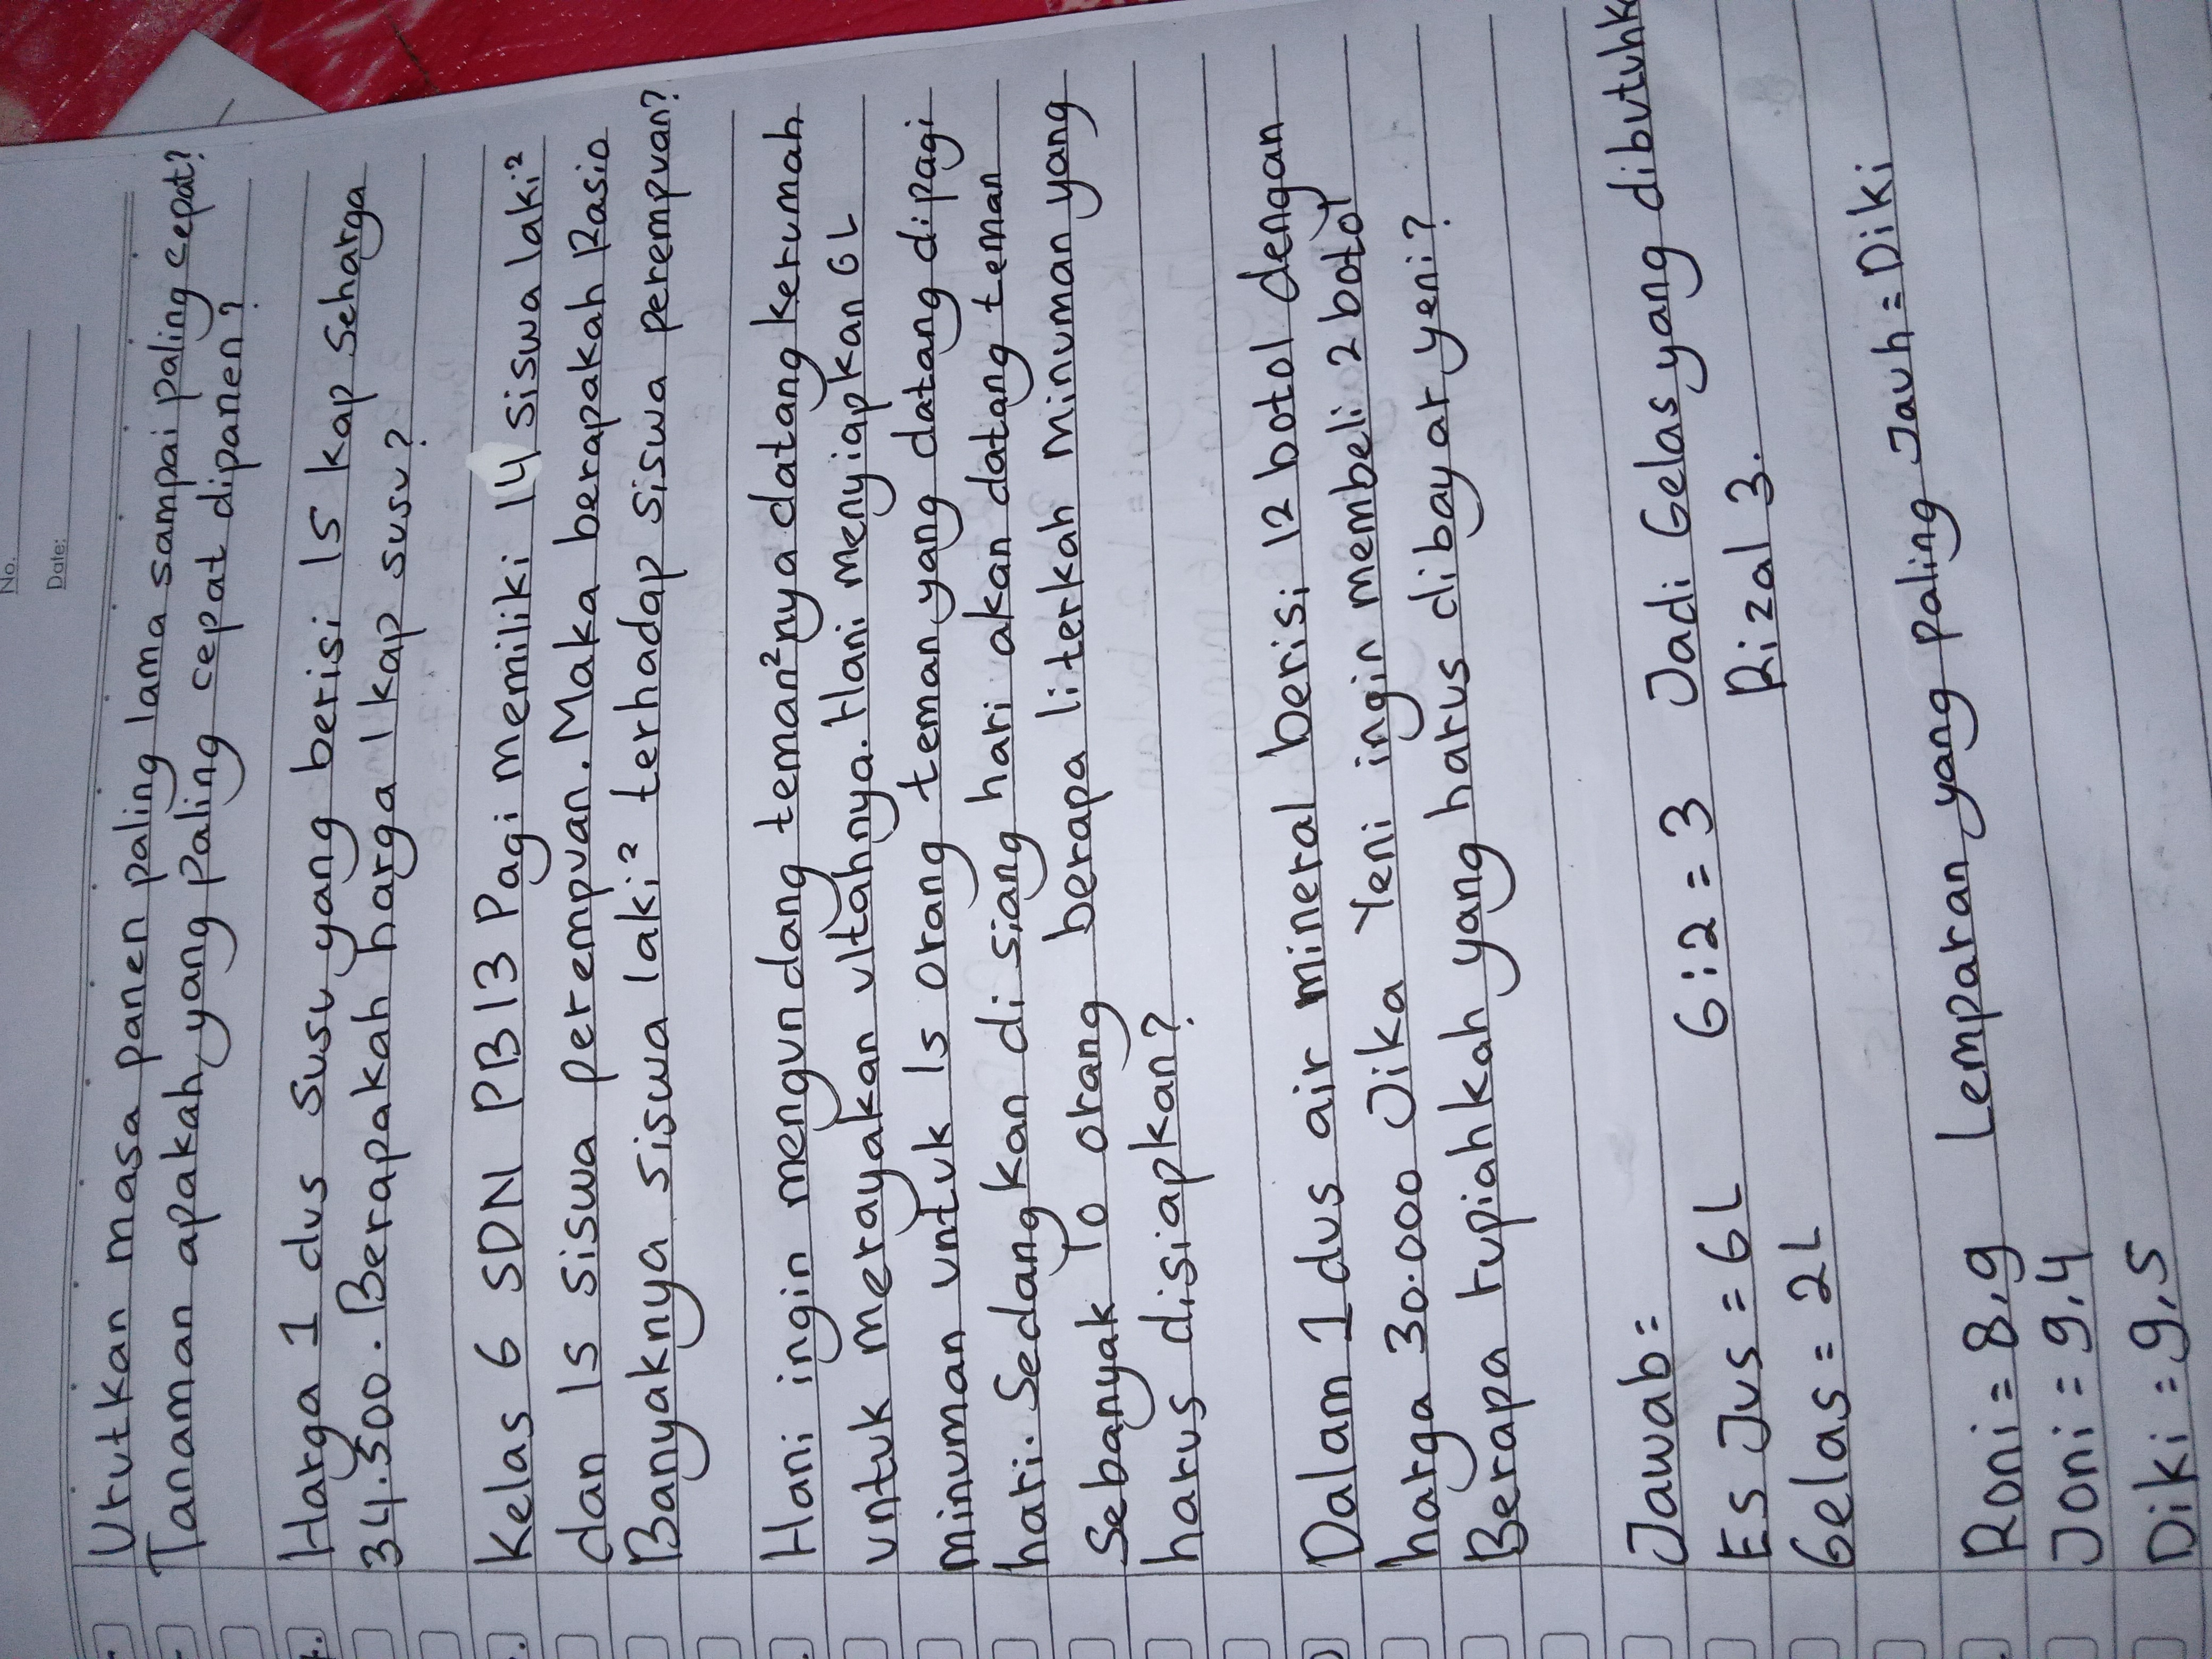 No.
Date:
Urutkan masa panen paling lama sampai paling cepat?
Tanaman apakah yang paling cepat dipanen?
Harga 1 dus susu yang berisi 15 kap seharga
34.500. Berapakah harga 1 kap susu?
Kelas 6 SDN PB13 Pagi memiliki 14 siswa laki²
dan 15 siswa perempuan. Maka berapakah Rasio
Banyaknya siswa laki² terhadap siswa perempuan?
Hani ingin mengundang teman²nya datang kerumah
untuk merayakan ultahnya. Hani menyiapkan 6L
minuman untuk 15 orang teman yang datang dipagi
hari. Sedangkan di siang hari akan datang teman
Sebanyak 10 orang berapa literkah minuman yang
harus disiapkan?
Dalam 1 dus air mineral berisi 12 botol dengan
harga 30.000 Jika Yeni ingin membeli 2 botol
Berapa rupiahkah yang harus dibayar yeni?
Jawab =
Es Jus = 6L 6:2 = 3 Jadi Gelas yang dibutuhk
Gelas = 2L Rizal 3.
Roni = 8,9 Lemparan yang paling Jauh = Diki
Joni = 9,4
Diki = 9,5